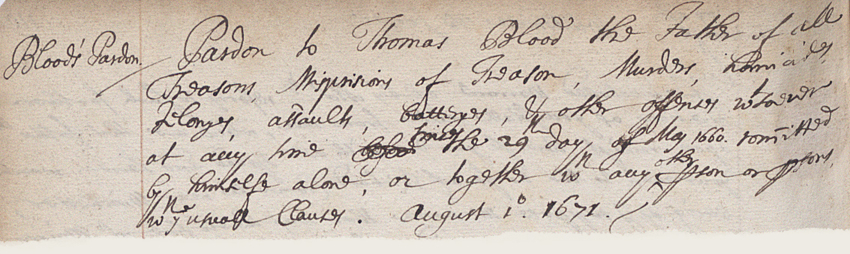 Blood's Pardon.
Pardon to Thomas Blood the Father of all
Treasons, Misprisions of Treason, Murders, homicides,
Felonyes, assaults, batteryes, & other offenses wtsoever
at any time before since the 29th day of May 1660. comitted
by himselfe alone, or together wth any other pson or psons,
wth ye usuall Clauses. August 1o. 1671.